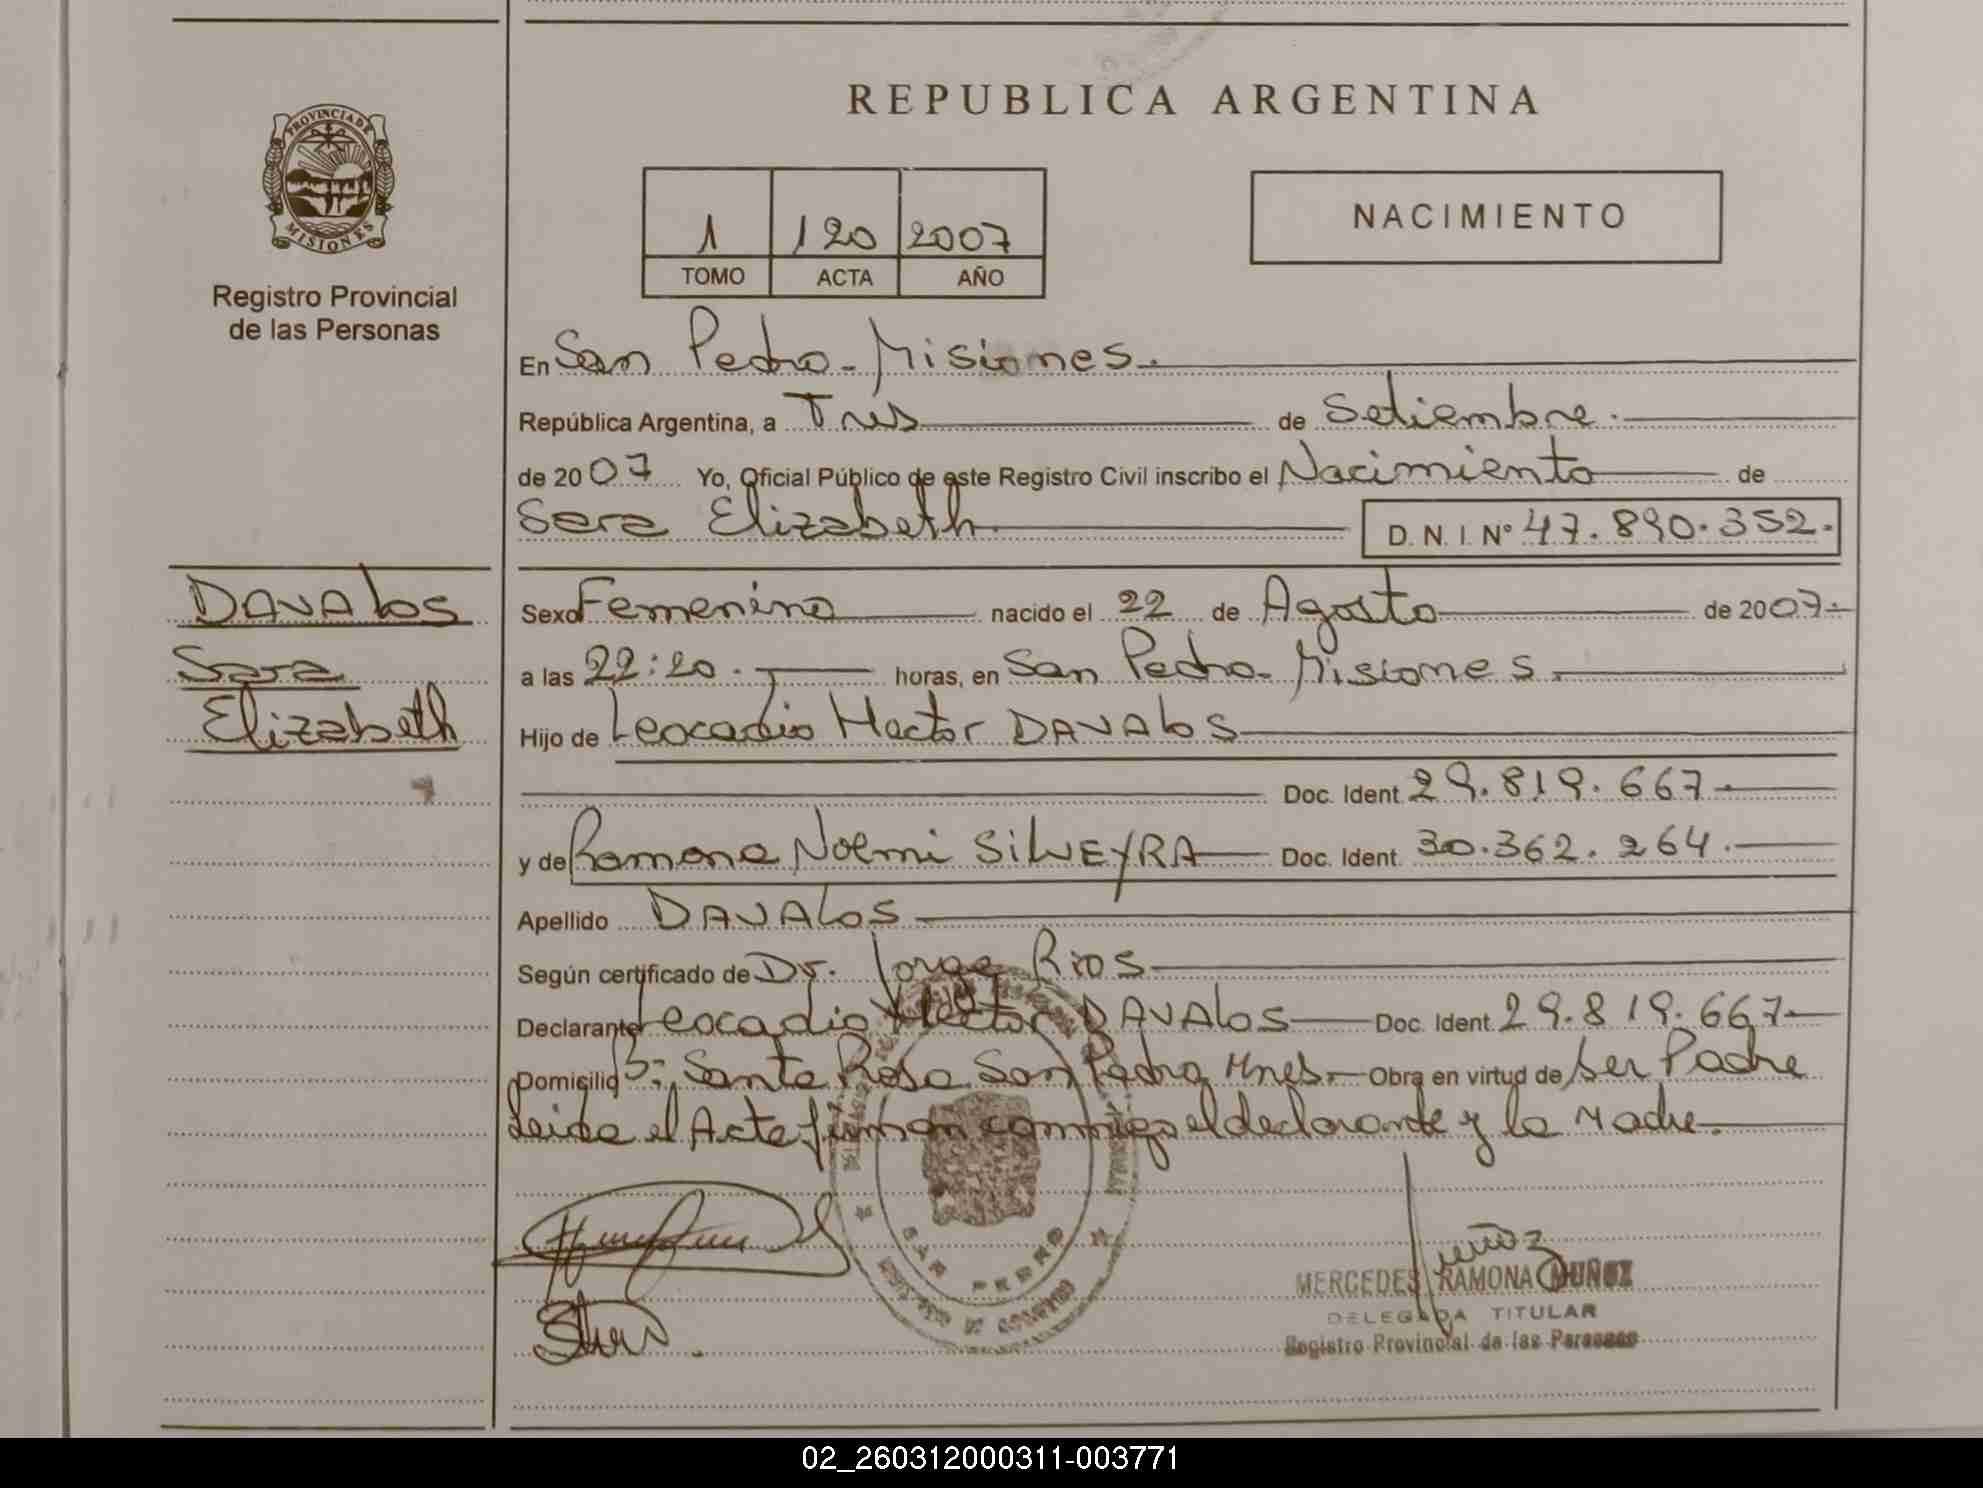 REPUBLICA ARGENTINA
PROVINCIA DE MISIONES
Registro Provincial
de las Personas
1 120 2007
TOMO ACTA AÑO
NACIMIENTO
En San Pedro - Misiones.
República Argentina, a Tres de Setiembre.
de 2007 Yo, Oficial Público de este Registro Civil inscribo el Nacimiento de
Sara Elizabeth. D. N. I. Nº 47.890.352.
DAVALOS
Sara
Elizabeth
Sexo Femenino nacido el 22 de Agosto de 2007.
a las 22:20. horas, en San Pedro - Misiones.
Hijo de Leocadio Hector DAVALOS
Doc. Ident. 29.819.667
y de Ramona Noemi SILVEYRA Doc. Ident. 30.362.264.
Apellido DAVALOS
Según certificado de Dr. Jorge Rios
Declarante Leocadio Hector DAVALOS Doc. Ident. 29.819.667
Domicilio Bº Santa Rosa San Pedro Mnes. Obra en virtud de ser Padre
Leida el Acta firman conmigo el declarante y la Madre.
SAN PEDRO
Muñoz
MERCEDES RAMONA MUÑOZ
DELEGADA TITULAR
Registro Provincial de las Personas
02_260312000311-003771